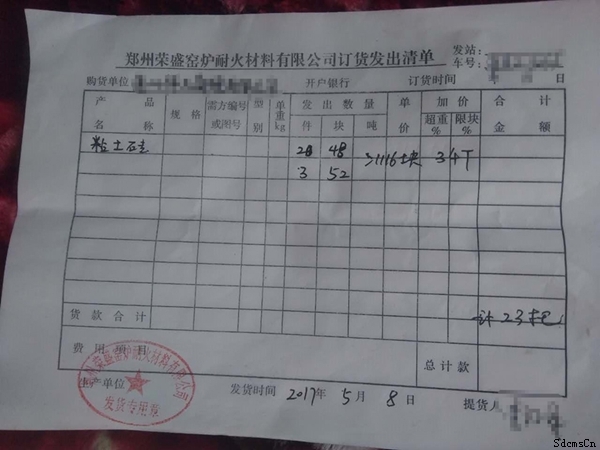 郑州荣盛窑炉耐火材料有限公司订货发出清单
发站:
车号:
购货单位 开户银行 订货时间 年 日
产品名称 规格 需方编号或图号 型别 单重kg 发出数量 单价 加价 合计金额
件 块 吨 超重% 限块%
粘土砖 20 48 1116块 34T
3 52
货款合计 计23
费用项目 总计款
生产单位 发货时间 2017年 5月 8日 提货人
郑州荣盛窑炉耐火材料有限公司
发货专用章
SdcmsCn